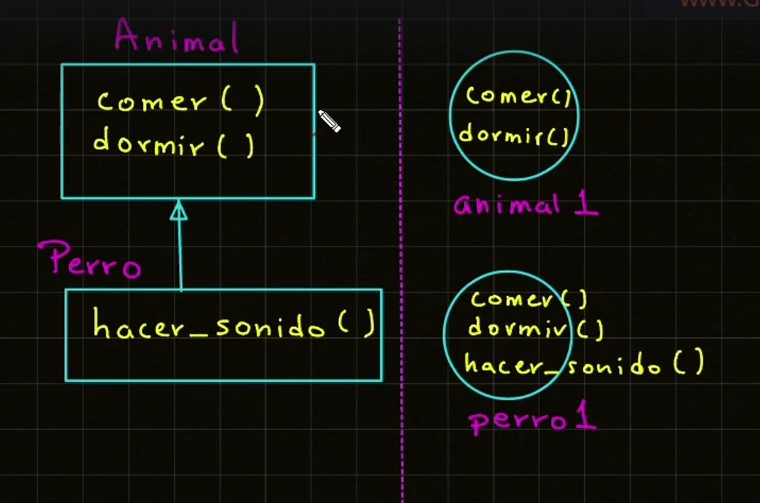 Animal
comer ( )
dormir ( )
Perro
hacer_sonido ( )
comer()
dormir()
animal 1
comer()
dormir()
hacer_sonido ( )
perro 1